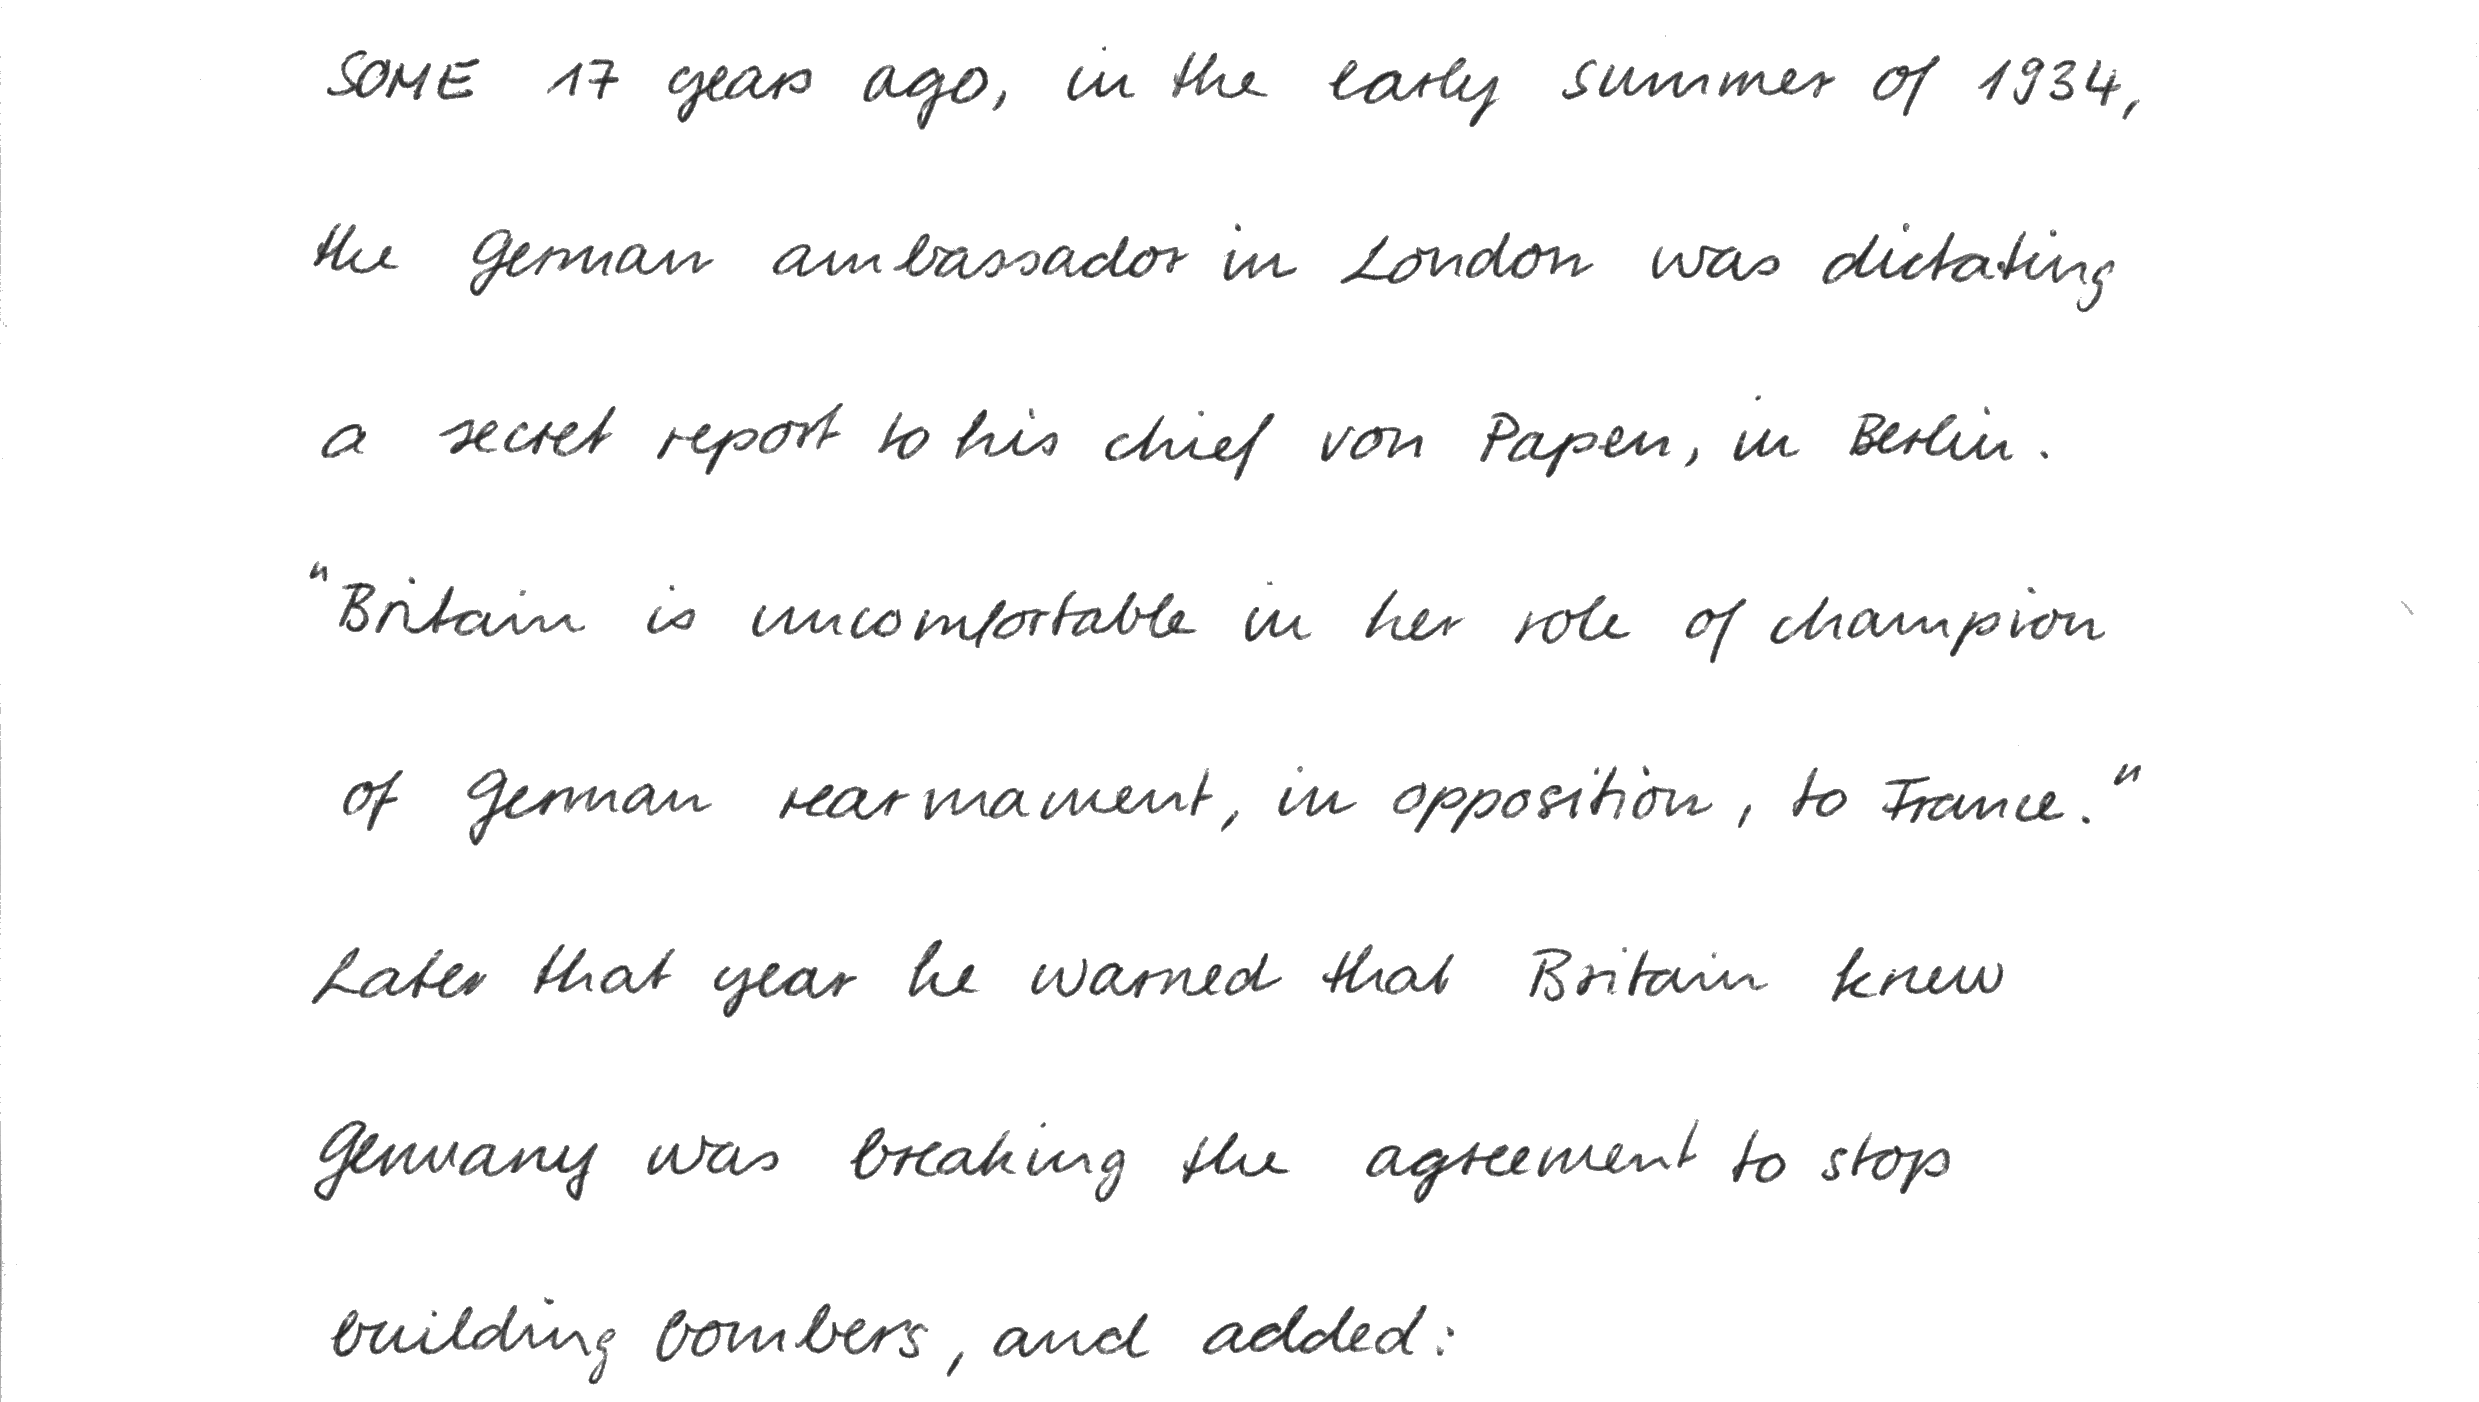 SOME 17 years ago, in the early summer of 1934,
the German ambassador in London was dictating
a secret report to his chief von Papen, in Berlin.
"Britain is uncomfortable in her role of champion
of German rearmament, in opposition, to France."
Later that year he warned that Britain knew
Germany was breaking the agreement to stop
building bombers, and added: